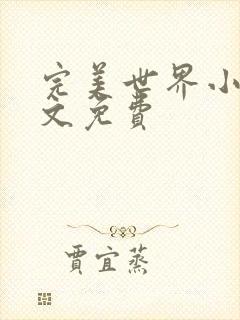 完美世界小
文免費
賈宜蒸